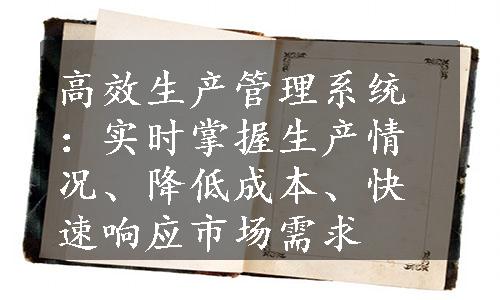 高效生产管理系统
：实时掌握生产情
况、降低成本、快
速响应市场需求